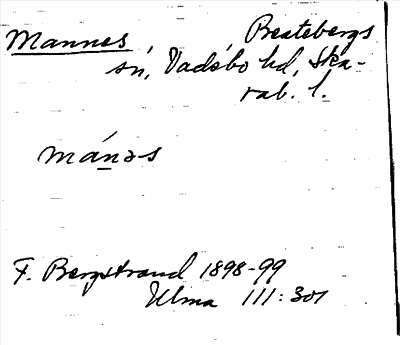 Mannes Beatebergs
sn, Vadsbo hd, Ska-
rab. l.
mánəs
F. Bergstrand 1898-99
Ulma 111:301